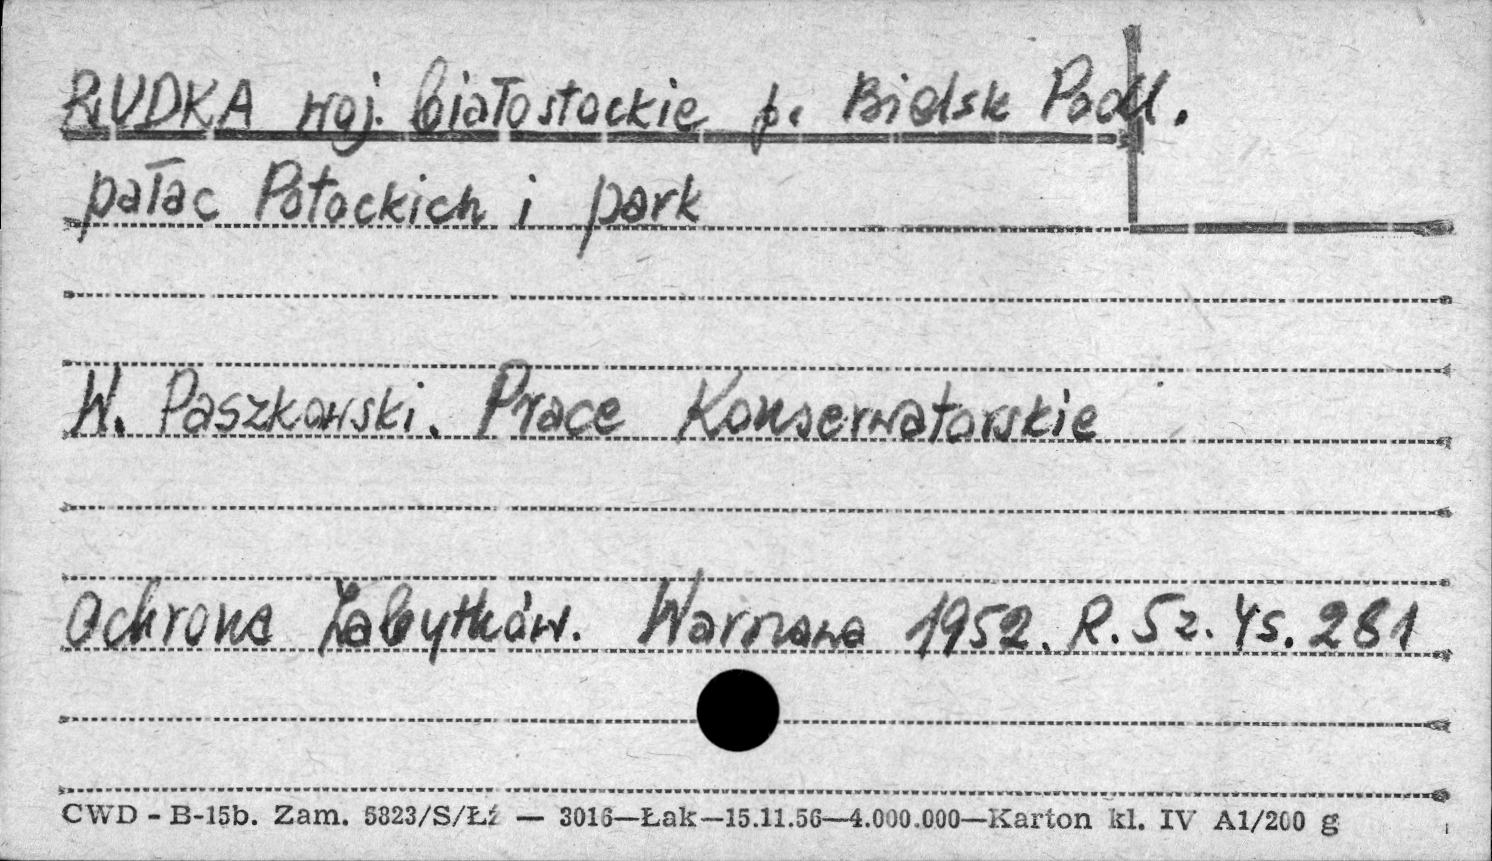 RUDKA woj. białostockie p. Bielsk Podl.
pałac Potockich i park
W. Paszkowski. Prace Konserwatorskie
Ochrona Zabytków. Warszawa 1952. R. 5 z. 4 s. 281
CWD - B-15b. Zam. 5823/S/Łź — 3016—Łak—15.11.56—4.000.000—Karton kl. IV A1/200 g